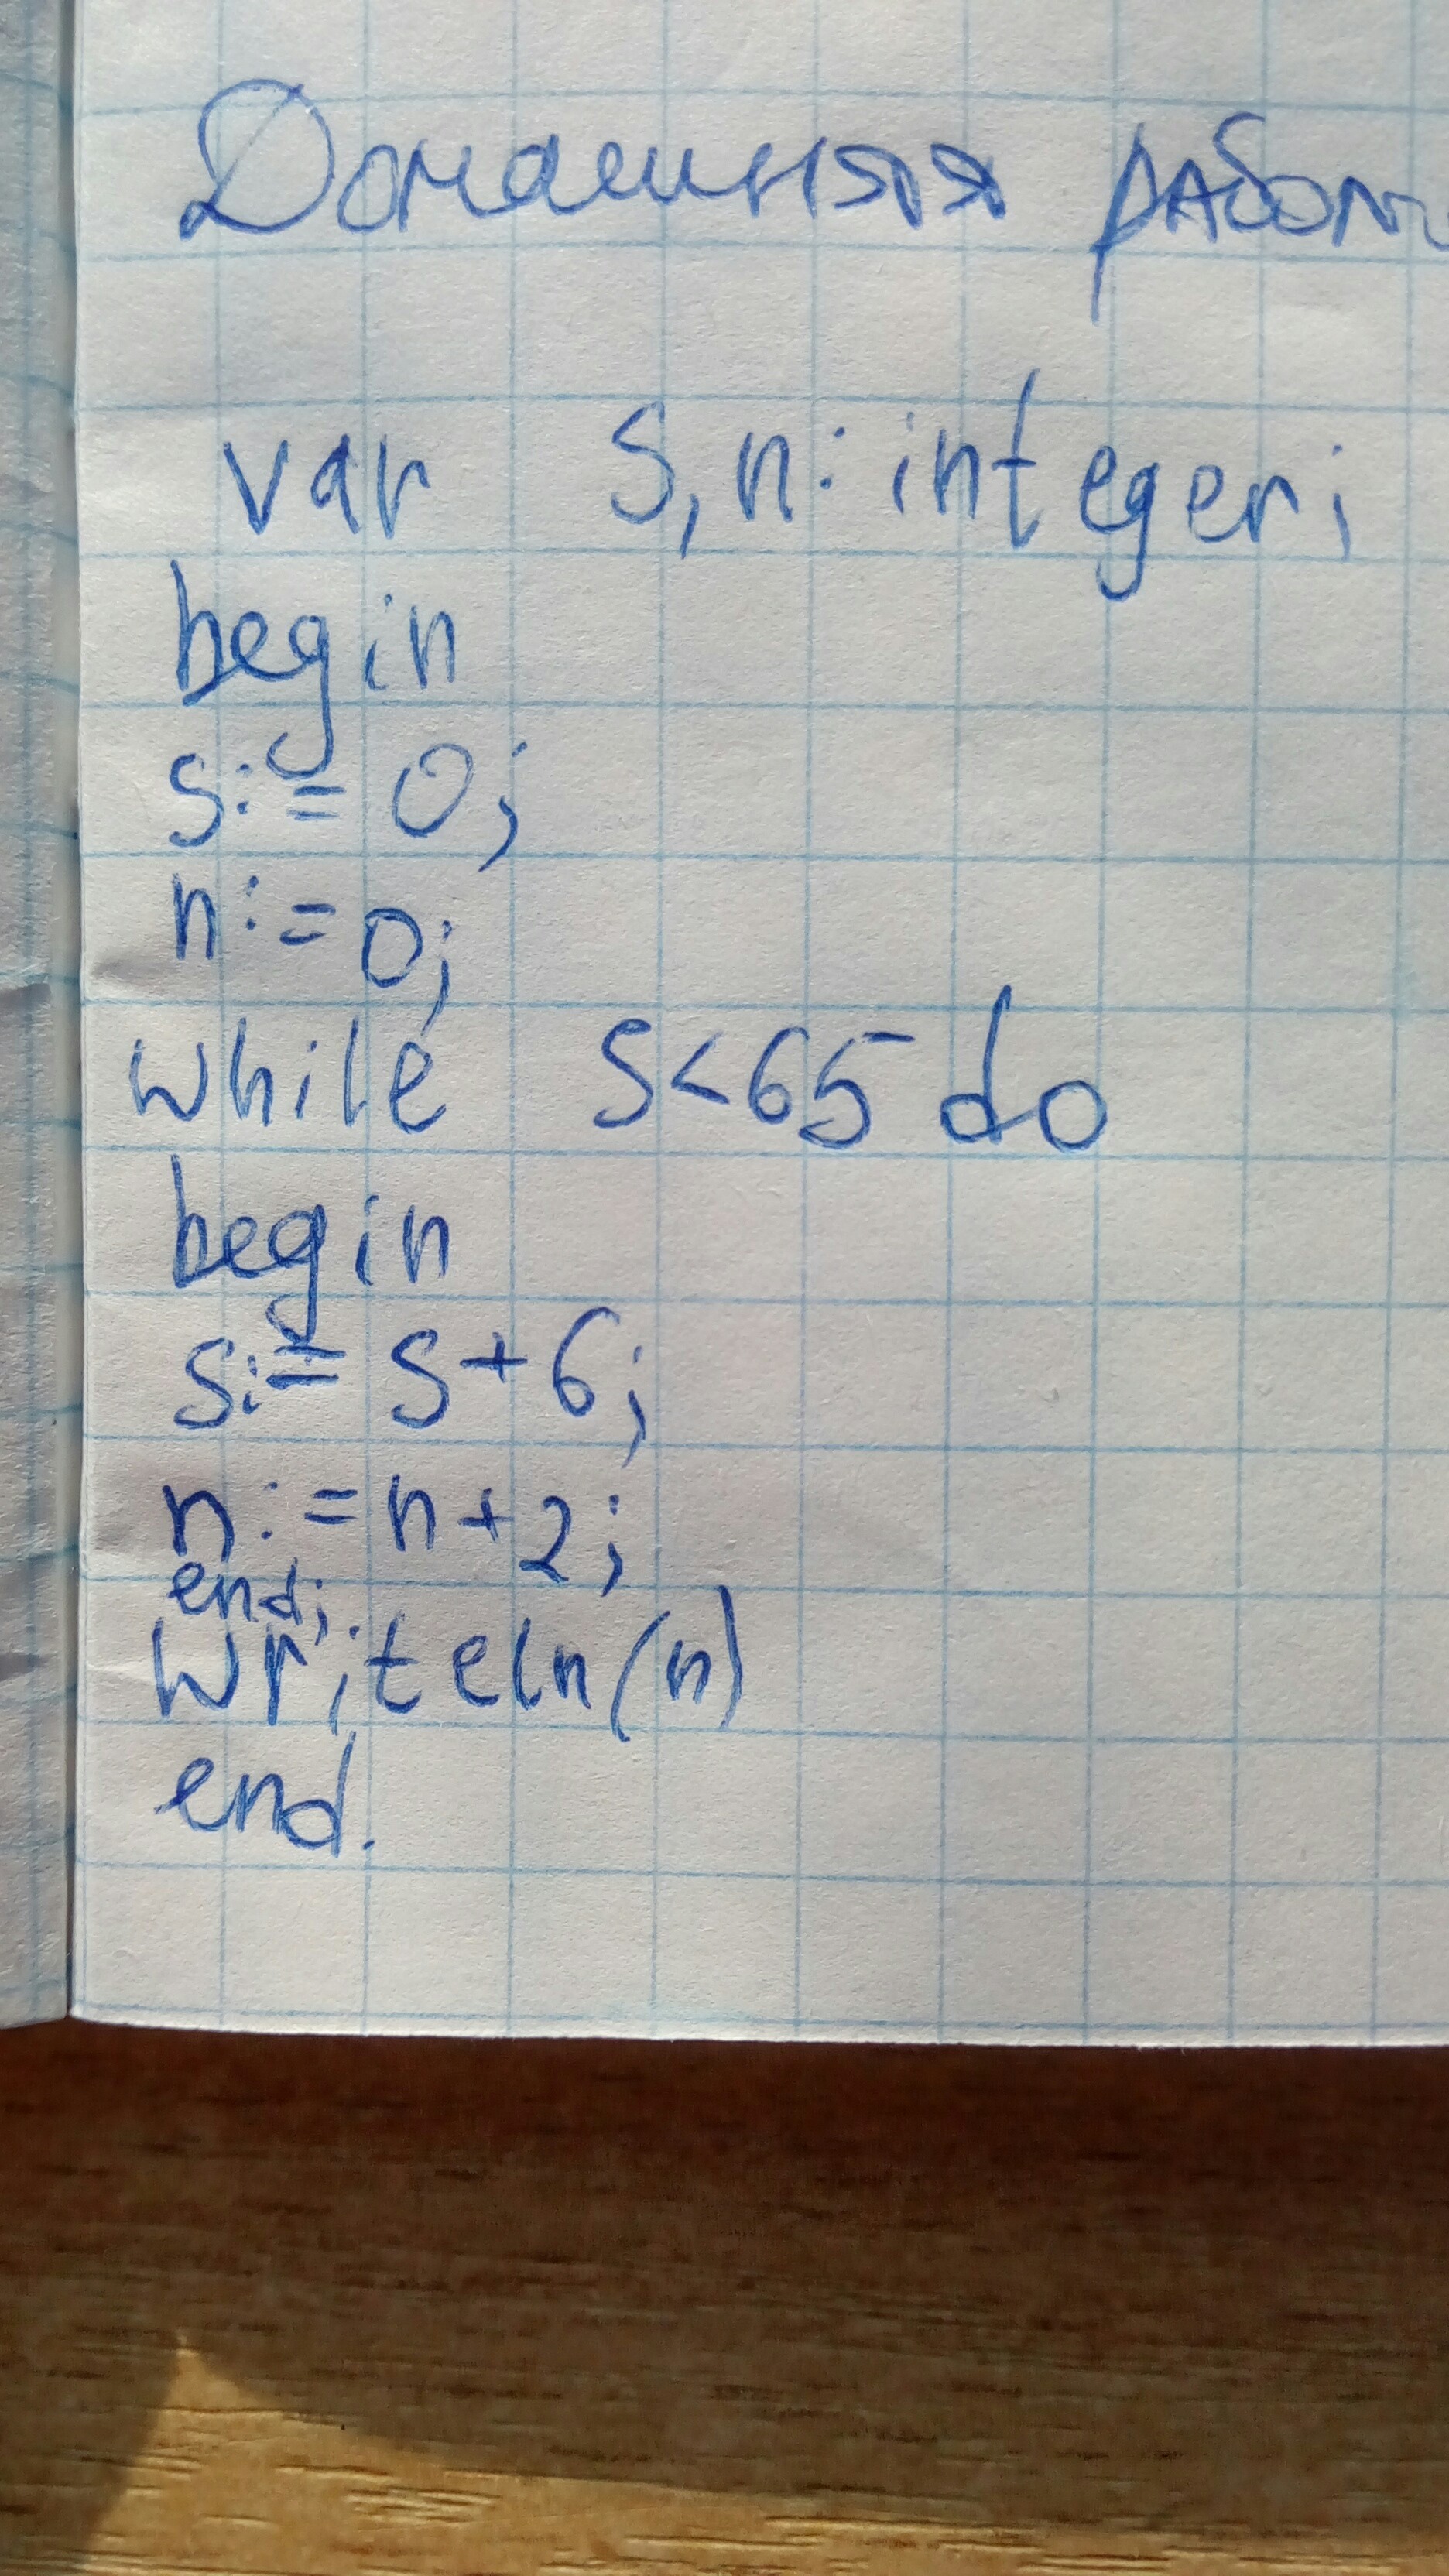 Домашняя работ
var s, n: integer;
begin
s:= 0;
n:= 0;
while s<65 do
begin
s:= s+6;
n:= n+2;
end;
writeln(n)
end.